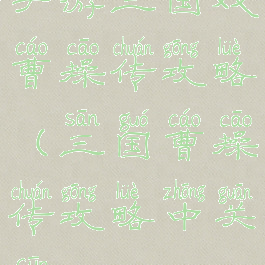 游三国戏
cáo cāo chuán gōng lüè
曹操传攻略
sān guó cáo cāo
（三国曹操
chuán gōng lüè zhōng guān
传攻略中关